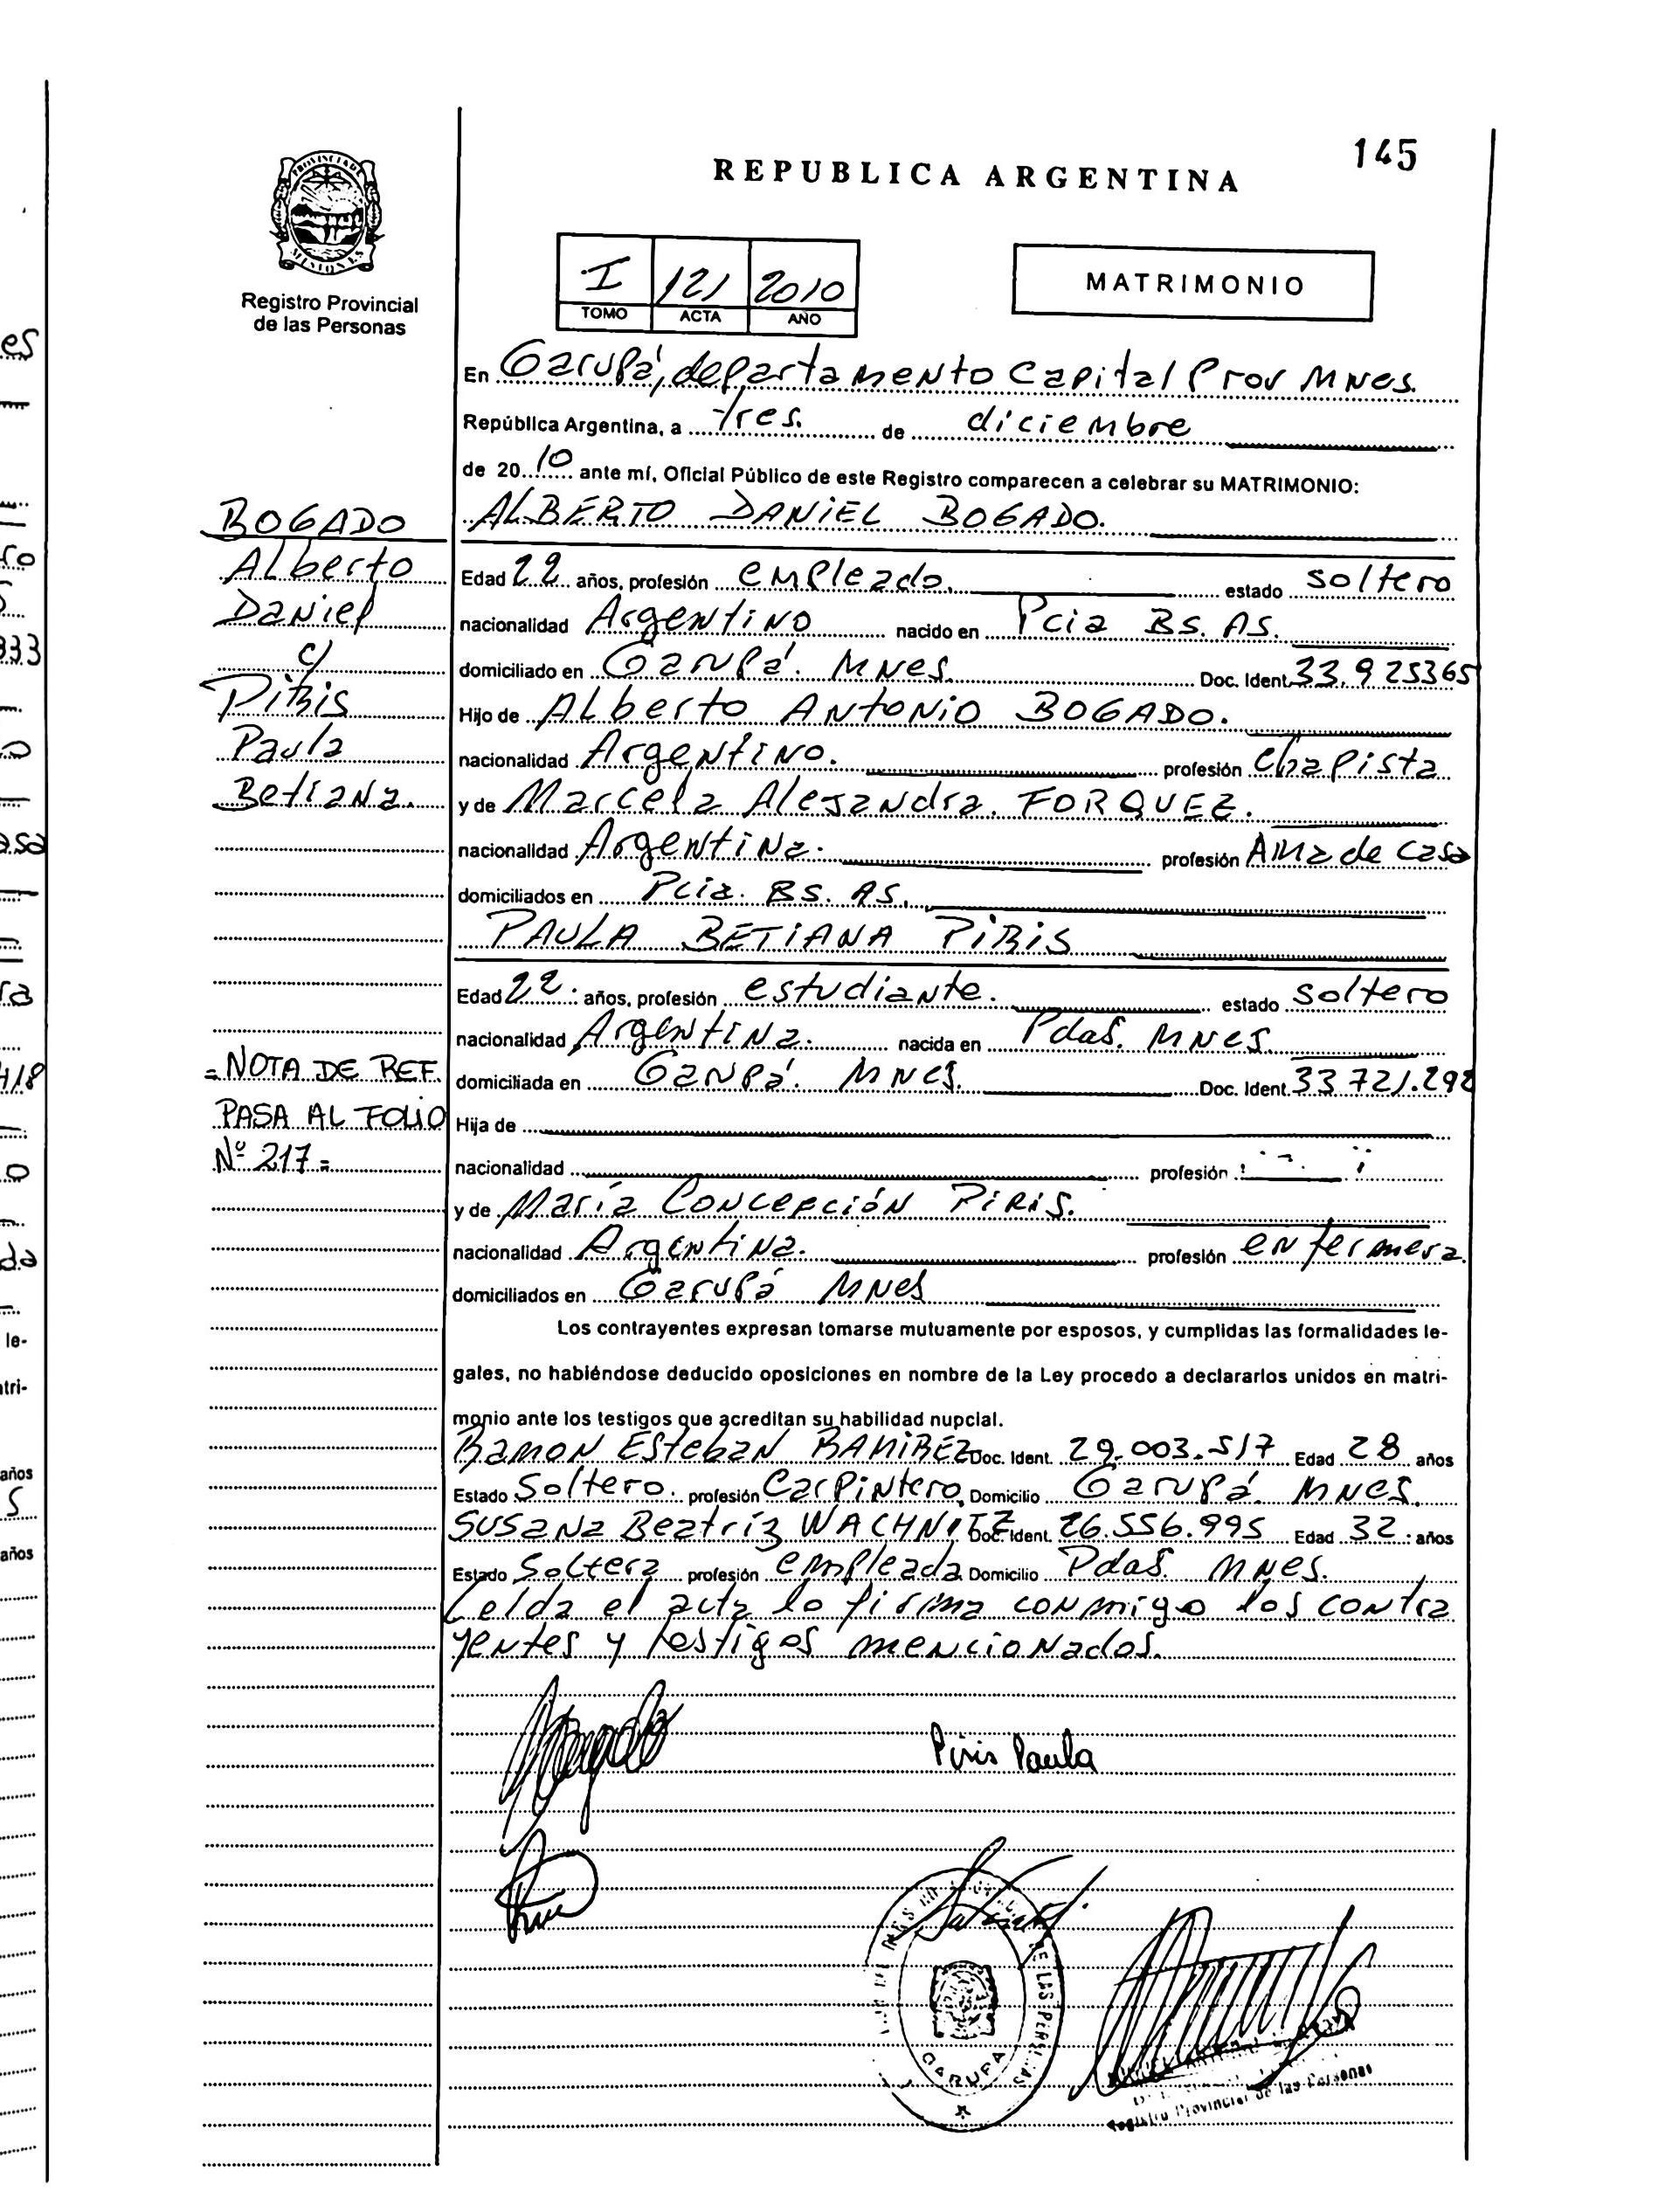 145
REPUBLICA ARGENTINA
PROVINCIA DE
MISIONES
Registro Provincial
de las Personas
I 121 2010
TOMO ACTA AÑO
MATRIMONIO
En Garupá, departamento Capital Prov Mnes.
República Argentina, a tres. de diciembre
de 20 10 ante mí, Oficial Público de este Registro comparecen a celebrar su MATRIMONIO:
BOGADO
Alberto
Daniel
c/
PIRIS
Paula
Betiana.
= NOTA DE REF.
PASA AL FOLIO
Nº 217 =
ALBERTO DANIEL BOGADO.
Edad 22 años, profesión empleado. estado soltero
nacionalidad Argentino nacido en Pcia Bs. As.
domiciliado en Garupá. Mnes. Doc. Ident. 33.925365
Hijo de Alberto Antonio BOGADO.
nacionalidad Argentino. profesión Chapista
y de Marcela Alejandra. FORQUEZ.
nacionalidad Argentina. profesión Ama de casa
domiciliados en Pcia. Bs. As.
PAULA BETIANA PIRIS
Edad 22. años, profesión estudiante. estado soltero
nacionalidad Argentina. nacida en Pdas. Mnes.
domiciliada en Garupá. Mnes. Doc. Ident. 33 721.292
Hija de
nacionalidad profesión
y de María Concepción PIRIS.
nacionalidad Argentina. profesión enfermera.
domiciliados en Garupá Mnes
Los contrayentes expresan tomarse mutuamente por esposos, y cumplidas las formalidades le-
gales, no habiéndose deducido oposiciones en nombre de la Ley procedo a declararlos unidos en matri-
monio ante los testigos que acreditan su habilidad nupcial.
Ramon Esteban RAMIREZ Doc. Ident. 29.003.517 Edad 28 años
Estado Soltero. profesión Carpintero. Domicilio Garupá. Mnes.
Susana Beatríz WACHNITZ Doc. Ident. 26.556.995 Edad 32. años
Estado Soltera profesión empleada Domicilio Pdas. Mnes.
Leida el acta lo firma conmigo los contra
yentes y testigos mencionados.
Piris Paula
DE LAS PERSONAS
GARUPA
Registro Provincial de las Personas
es
ro
333
o
asa
ra
418
o
da
le-
tri-
años
s
años